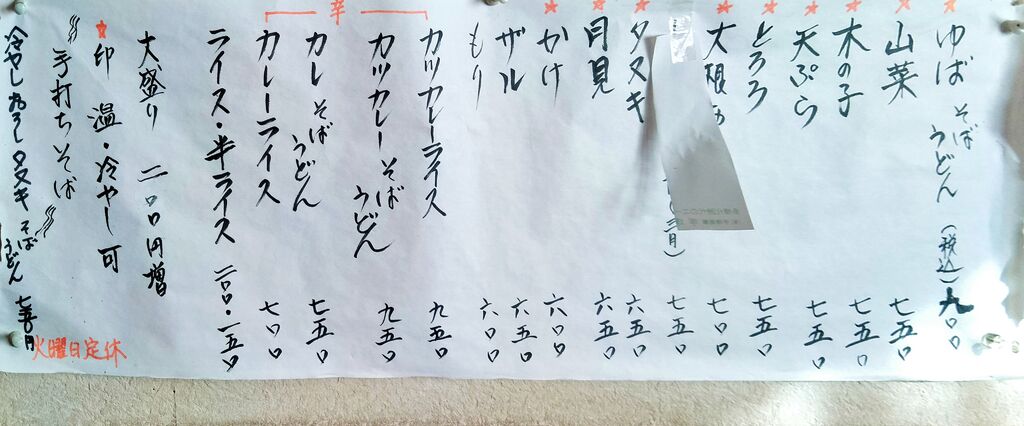 ゆば そば うどん (税込) 九〇〇
山菜 七五〇
木の子 七五〇
天ぷら 七五〇
とろろ 七五〇
大根 七〇〇
七五〇
タヌキ 六五〇
月見 六五〇
かけ 六〇〇
ザル 六五〇
もり 六〇〇
辛
カツカレーライス 九五〇
カツカレー そば うどん 九五〇
カレー そば うどん 七五〇
カレーライス 七〇〇
ライス・半ライス 二〇〇・一五〇
大盛り 二〇〇円増
★印 温・冷やし可
手打ちそば
冷やし おろし タヌキ そば うどん
火曜日定休